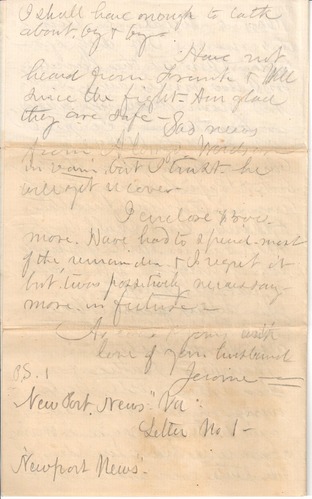 I shall have enough to talk
about by & by.
Have not
heard from Frank & Will
since the fight - Am glad
they are safe -
Sad news
from
in vain, but I trust he
will get
I enclose
more. Have had to spend most
of the remainder & I regret it
but 'twas positively necessary
more in future
with
love of your husband
Jerome
P.S. 1
"New Port News" Va.
Letter No 1 -
"Newport News"